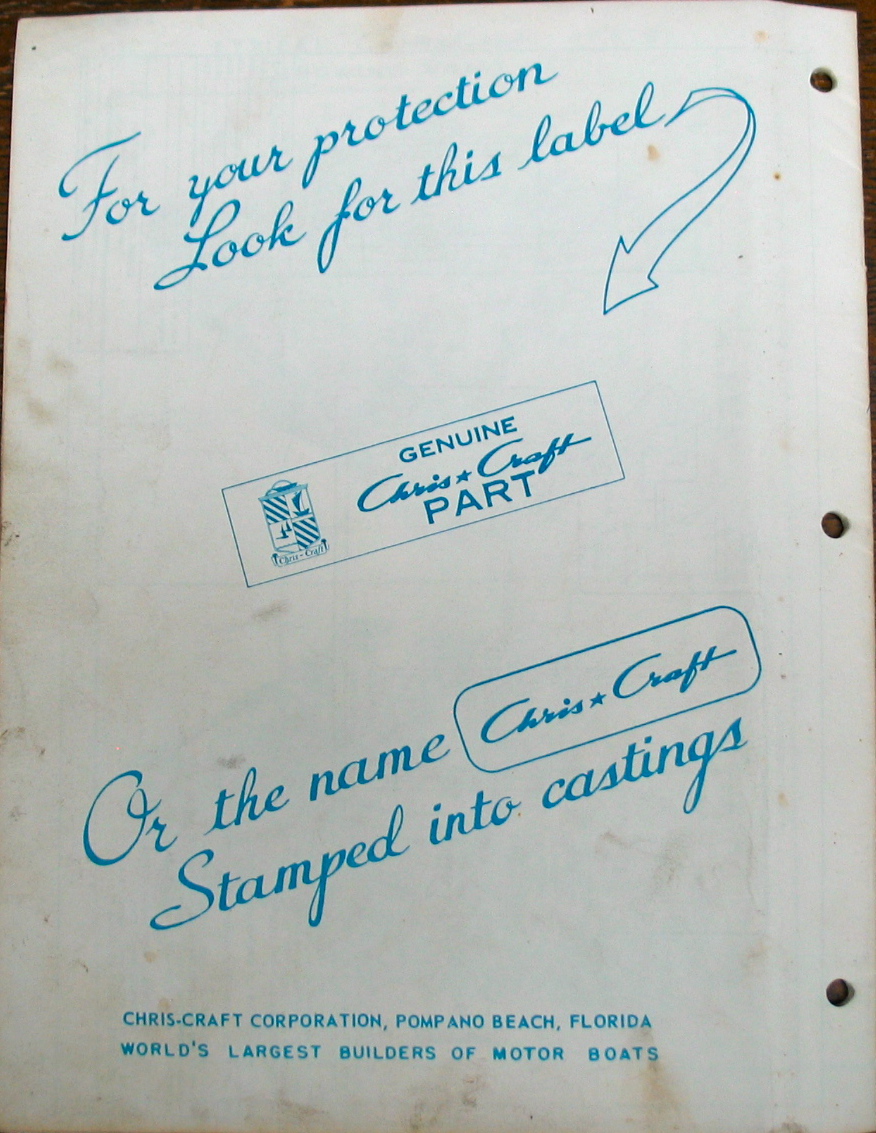 For your protection
Look for this label
GENUINE
Chris★Craft
PART
Chris-Craft
Or the name Chris★Craft
Stamped into castings
CHRIS-CRAFT CORPORATION, POMPANO BEACH, FLORIDA
WORLD'S LARGEST BUILDERS OF MOTOR BOATS